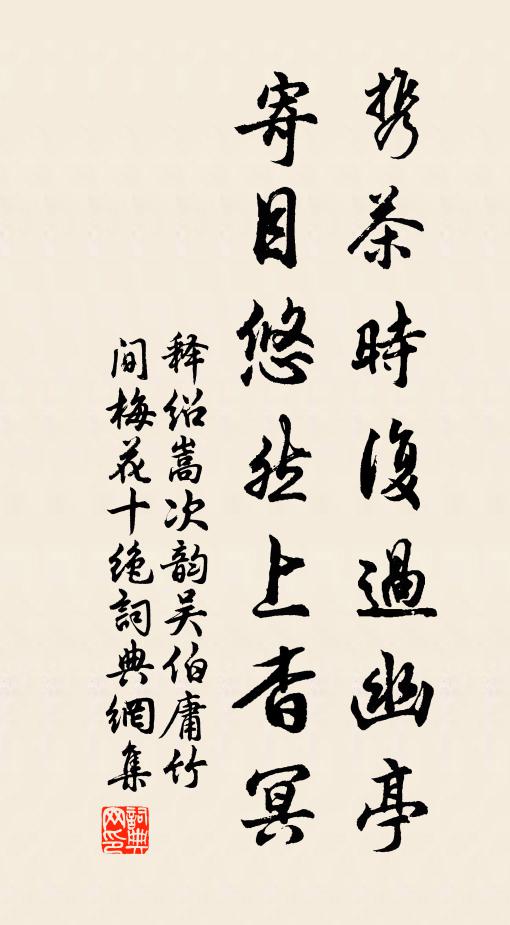 携茶時復過幽亭
寄目悠然上杳冥
释绍嵩次韵吴伯庸竹
间梅花十绝詞典網集
詞典网印